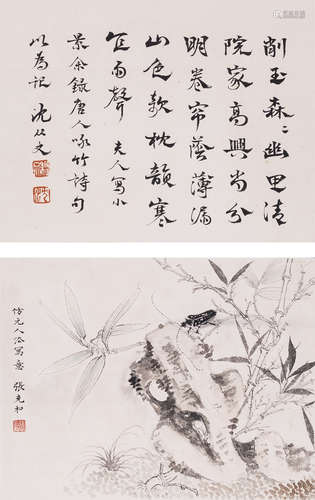 削玉森森幽思清
院家高興尚分
明卷帘蔭薄漏
山色欹枕韻寒
宜雨聲 夫人寫小
景余錄唐人咏竹詩句
以為記 沈從文
仿元人冷寫意 張充和